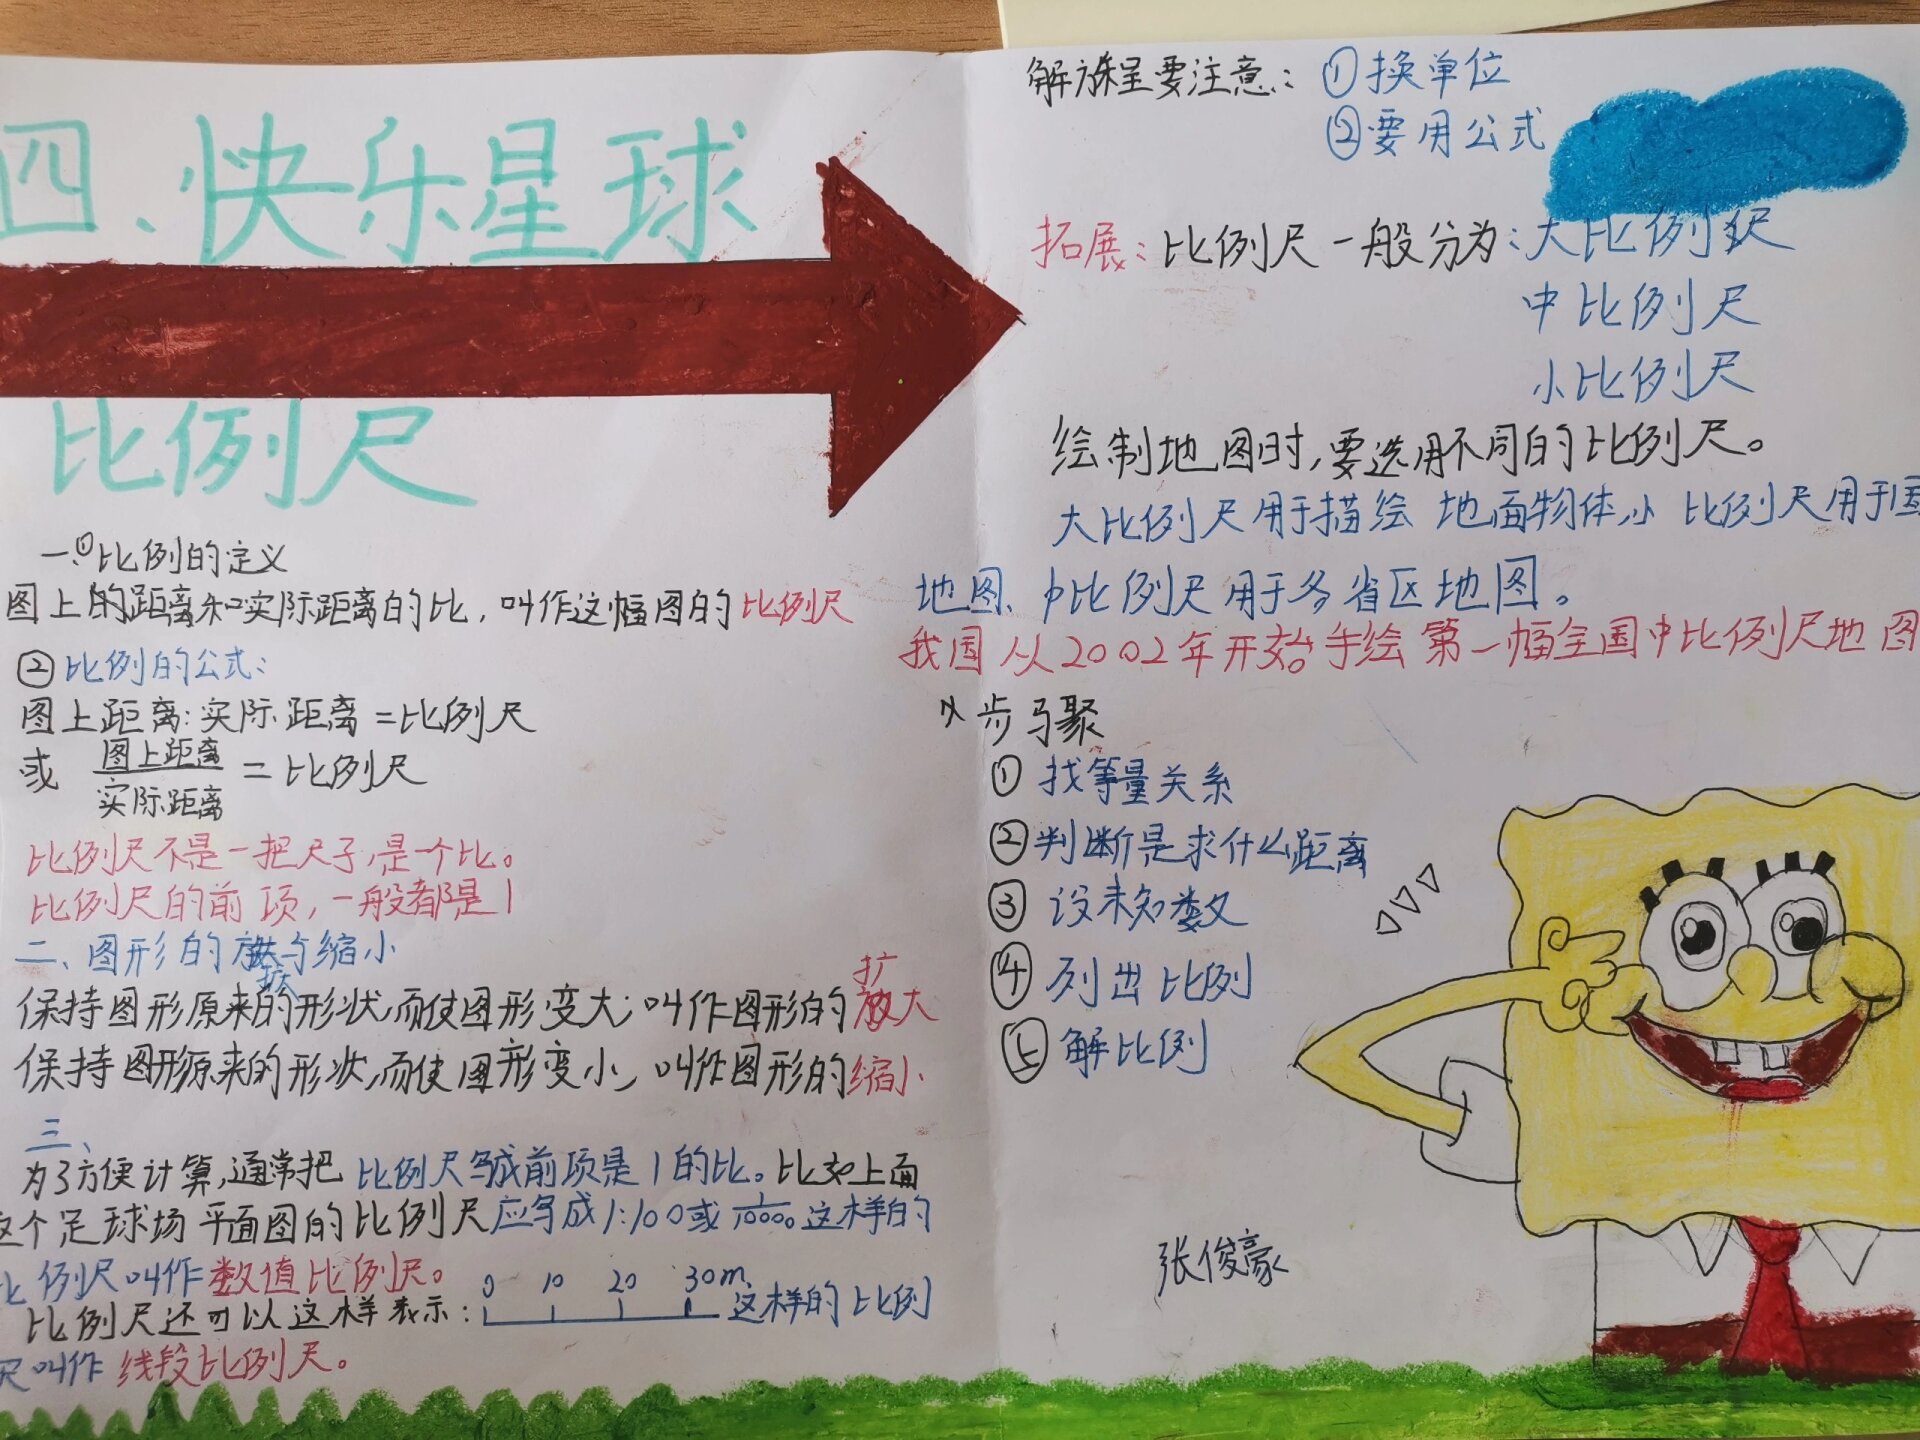 四、快乐星球
比例尺
一、①比例的定义
图上的距离和实际距离的比，叫作这幅图的比例尺
②比例的公式：
图上距离：实际距离=比例尺
或 图上距离/实际距离 = 比例尺
比例尺不是一把尺子，是一个比。
比例尺的前项，一般都是1
二、图形的放大与缩小
保持图形原来的形状，而使图形变大，叫作图形的放大
扩
保持图形原来的形状，而使图形变小，叫作图形的缩小
三、
为了方便计算，通常把比例尺写成前项是1的比。比如上面
这个足球场平面图的比例尺应写成1:100或1/10000这样的
比例尺叫作数值比例尺。
比例尺还可以这样表示：0 10 20 30m 这样的比例
尺叫作线段比例尺。
解方程要注意：①换单位
②要用公式
拓展：比例尺一般分为：大比例尺
中比例尺
小比例尺
绘制地图时，要选用不同的比例尺。
大比例尺用于描绘地面物体，小比例尺用于国
地图、中比例尺用于各省区地图。
我国从2002年开始手绘第一幅全国中比例尺地图
步马聚
①找等量关系
②判断是求什么距离
③设未知数
④列出比例
⑤解比例
张俊豪